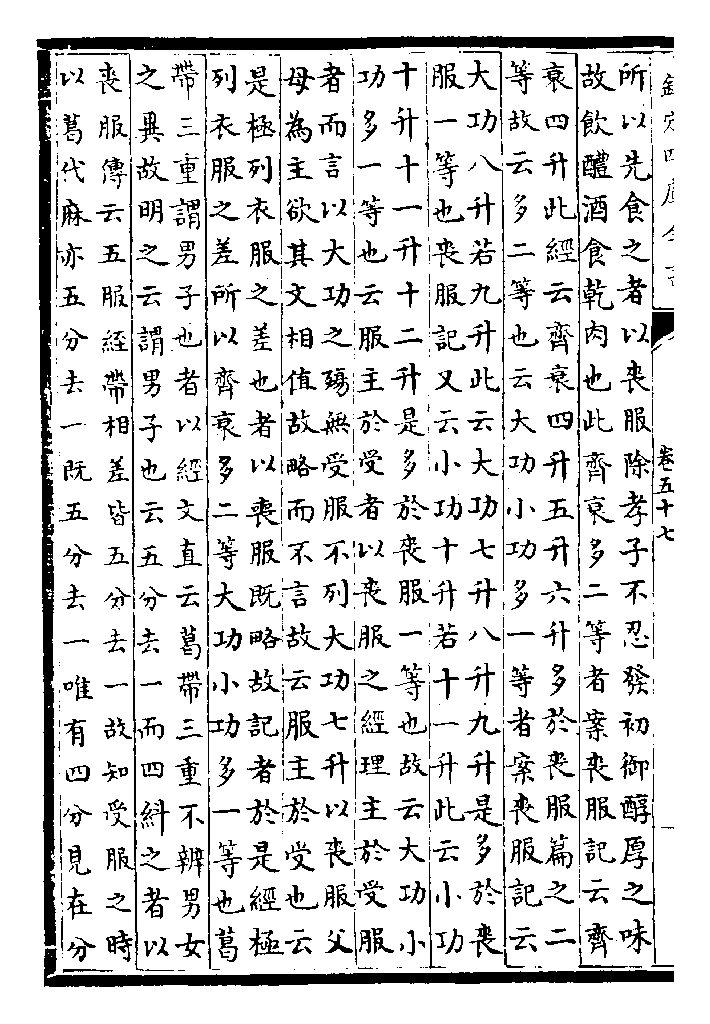 欽定四庫全書
卷五十七
所以先食之者以喪服除孝子不忍發初御醇厚之味
故飲醴酒食乾肉也此齊衰多二等者案喪服記云齊
衰四升此經云齊衰四升五升六升多於喪服篇之二
等故云多二等也云大功小功多一等者案喪服記云
大功八升若九升此云大功七升八升九升是多於喪
服一等也喪服記又云小功十升若十一升此云小功
十升十一升十二升是多於喪服一等也故云大功小
功多一等也云服主於受者以喪服之經理主於受服
者而言以大功之殤無受服不列大功七升以喪服父
母為主欲其文相值故略而不言故云服主於受也云
是極列衣服之差也者以喪服既略故記者於是經極
列衣服之差所以齊衰多二等大功小功多一等也葛
帶三重謂男子也者以經文直云葛帶三重不辨男女
之異故明之云謂男子也云五分去一而四糾之者以
喪服傳云五服絰帶相差皆五分去一故知受服之時
以葛代麻亦五分去一既五分去一唯有四分見在分